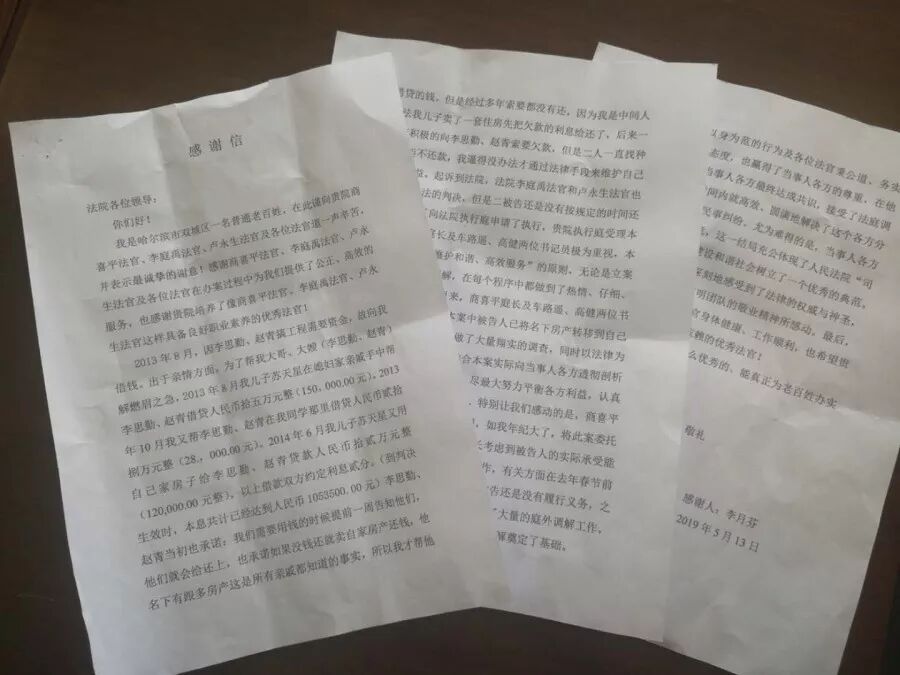 感谢信
法院各位领导：
你们好！
我是哈尔滨市双城区一名普通老百姓，在此谨向贵院商
喜平法官、李庭禹法官、卢永生法官及各位法官道一声辛苦，
并表示最诚挚的谢意！感谢商喜平法官、李庭禹法官、卢永
生法官及各位法官在办案过程中为我们提供了公正、高效的
服务，也感谢贵院培养了像商喜平法官、李庭禹法官、卢永
生法官这样具备良好职业素养的优秀法官！
2013年8月，因李思勤、赵青搞工程需要资金，故向我
借钱。出于亲情方面，为了帮我大哥、大嫂（李思勤、赵青）
解燃眉之急，2013年8月我儿子苏天星在他妇家亲戚手中帮
李思勤、赵青借贷人民币拾五万元整（150,000.00元）。2013
年10月我又帮李思勤、赵青在我同学那里借贷人民币贰拾
捌万元整（28.，000.00元）。2014年6月我儿子苏天星又用
自己家房子给李思勤、赵青贷款人民币拾贰万元整
（120,000.00元整），以上借款双方约定利息贰分。（到判决
生效时，本息共计已经达到人民币1053500.00元）李思勤、
赵青当初也承诺：我们需要用钱的时候提前一周告知他们，
他们就会给还上，也承诺如果没钱还就卖自家房产还钱，他
名下有跟多房产这是所有亲戚都知道的事实，所以我才帮他
借贷的钱，但是经过多年索要都没有还，因为我是中间人
法我儿子卖了一套住房先把欠款的利息给还了，后来一
积极的向李思勤、赵青索要欠款，但是二人一直找种
不还款，我逼得没办法才通过法律手段来维护自己
益，起诉到法院，法院李庭禹法官和卢永生法官也
法的判决，但是二被告还是没有按规定的时间还
向法院执行庭申请了执行，贵院执行庭受理本
官长及车路遥、高健两位书记员极为重视，本
护和谐、高效服务”的原则，无论是立案
解，在每个程序中都做到了热情、仔细、
来，商喜平庭长及车路遥、高健两位书
本案中被告人已将名下房产转移到自己
做了大量翔实的调查，同时以法律为
合本案实际向当事人各方透彻剖析
尽最大努力平衡各方利益，认真
。特别让我们感动的是，商喜平
，如我年纪大了，将此案委托
长考虑到被告人的实际承受能
作，有关方面在去年春节前
告还是没有履行义务，之
大量的庭外调解工作，
解奠定了基础。
以身为范的行为及各位法官秉公道、务实
态度，也赢得了当事人各方的尊重，在他
当事人各方最终达成共识，接受了法庭调
时间内就高效、圆满地解决了这个各方分
民事纠纷。尤为难得的是，当事人各方
，这一结局充分体现了人民法院“司
建设和谐社会树立了一个优秀的典范。
深刻地感受到了法律的权威与神圣，
明团队的敬业精神所感动。最后，
官身体健康、工作顺利，也希望贵
么优秀的、能真正为老百姓办实
赖的优秀法官！
敬礼
感谢人：李月芬
2019年5月13日